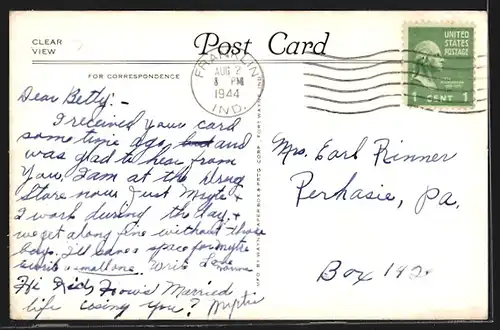 CLEAR
VIEW
Post Card
FOR CORRESPONDENCE
FRANKLIN
AUG 2
8 PM
1944
IND.
UNITED
STATES
POSTAGE
1 CENT 1
Dear Betty: -
I received your card
some time ago, but and
was glad to hear from
you. I am at the drug
store now. Just Myrt &
I work during the day, &
we get along fine without those
boys. I'll leave space for Myrt
small one. Write Love
Hi Kid, How's Married
life using you? Myrtis
Mrs. Earl Rinner
Perkasie, Pa.
Box 192